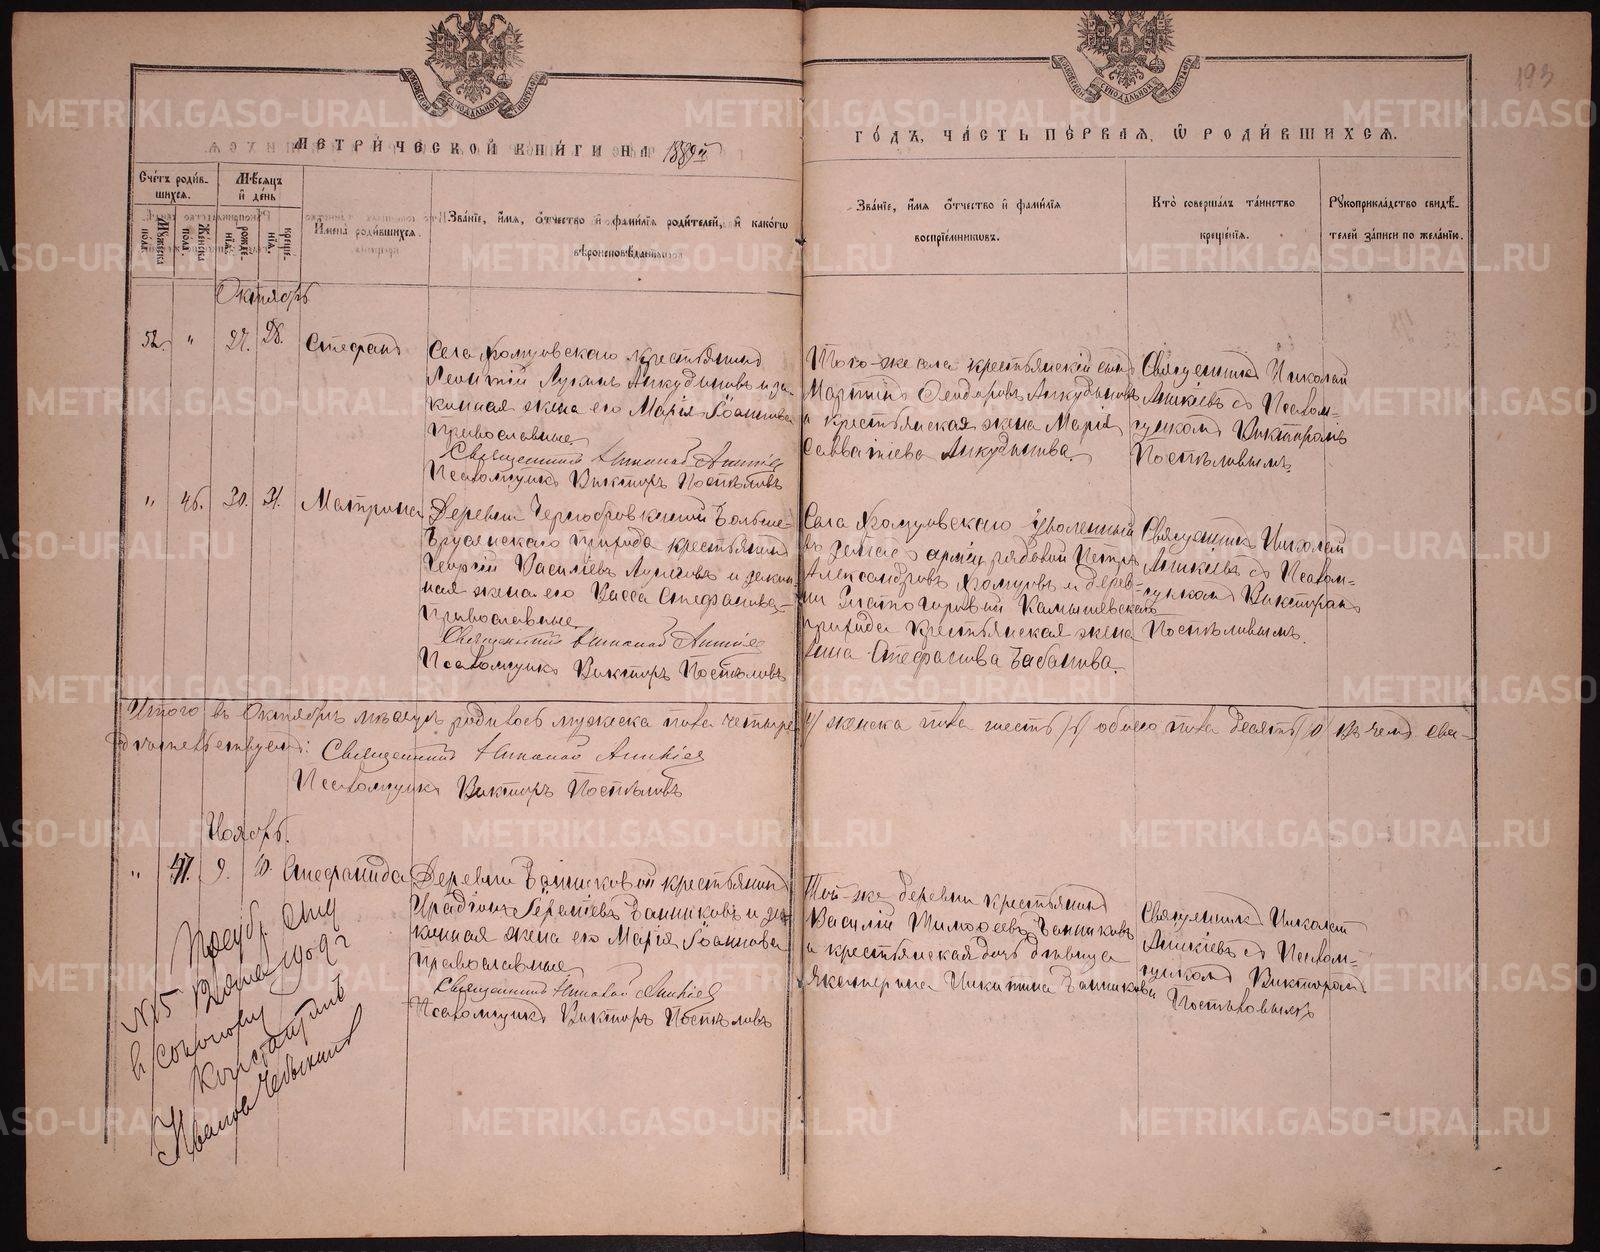 193
МЕТРИ́ЧЕСКОЙ КНИ́ГИ НА 1889й
ГО́ДЪ, ЧА́СТЬ ПЕ́РВАЯ, Ѿ РОДИ́ВШИХСѦ.
Сче́тъ роди́в-
шихся.
Мꙋ́жеска по́ла.
Же́нска по́ла.
Мѣ́сяцъ
и҆ де́нь
рожде́-
нїѧ.
креще́-
нїѧ.
И҆мена̀ роди́вшихся.
Зва́нїе, и҆́мя, ѻ҆́тчество и҆ фами́лїя роди́телей, и҆ како́гѡ
вѣроисповѣ́данїѧ.
Зва́нїе, и҆́мя ѻ҆́тчество и҆ фами́лїя
воспрїе́мниковъ.
Кто̀ соверша́лъ та́инство
креще́нїѧ.
Рꙋкоприкла́дство свидѣ́-
телей за́писи по жела́нїю.
Октябрь
52. " 27. 28. Стефанъ
Села Хомутовскаго крестьянинъ
Леонтій Лукинъ Анкудиновъ и за-
конная жена его Марія Іоаннова
православные
Священникъ Николай Аникіевъ
Псаломщикъ Викторъ Поспѣловъ
Того-же села крестьянскій сынъ
Мартинъ Ѳеодоровъ Анкудиновъ
и крестьянская жена Марія
Савватіева Анкудинова.
Священникъ Николай
Аникіевъ съ Псалом-
щикомъ Викторомъ
Поспѣловымъ.
" 46. 30. 31. Матрона
Деревни Чернобровкиной Больше-
Брусянскаго прихода крестьянинъ
Георгій Василіевъ и закон-
ная жена его Васса Стефанова
православные
Священникъ Николай Аникіевъ
Псаломщикъ Викторъ Поспѣловъ
Села Хомутовскаго уволенный
въ запасъ арміи рядовой Петръ
Александровъ Хомутовъ и дерев-
ни Златогоровой Камышевскаго
прихода Крестьянская жена
Анна Стефанова Бабанова.
Священникъ Николай
Аникіевъ съ Псалом-
щикомъ Викторомъ
Поспѣловымъ.
Итого въ Октябрѣ мѣсяцѣ родилось мужеска пола четыре /4/ женска пола шесть /6/ обоего пола десять /10/ Въ чемъ сви-
дѣтельствуемъ: Священникъ Николай Аникіевъ
Псаломщикъ Викторъ Поспѣловъ
Ноябрь.
" 47. 9. 10. Стефанида
Деревни Банниковой крестьянинъ
Иродіонъ Банниковъ и за-
конная жена его Марія Іоаннова
православные
Священникъ Николай Аникіевъ
Псаломщикъ Викторъ Поспѣловъ
Той-же деревни крестьянинъ
Василій Тимоѳеевъ Банниковъ
и крестьянская дочь дѣвица
Екатерина Никитина Банникова
Священникъ Николай
Аникіевъ съ Псалом-
щикомъ Викторомъ
Поспѣловымъ
№ 15
1909 г
Константинъ
Ивановъ
METRIKI.GASO-URAL.RU